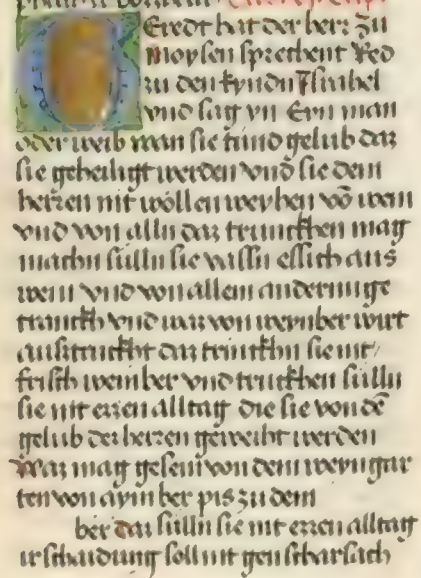 Eredt hat der herr zu
Moysen sprechent Red
zu den kyndn Israhel
vnd sag yn Eyn man
oder weib wan sie tund gelub daz
sie geheiligt werden vnd sie dem
herren nit wöllen weyhen võ wein
vnd von alln daz trunckhen mag
machn sülln sie vassn essich aus
wein vnd von allem anderm ge
tranckh vnd waz von weynber wirt
austruckht daz trinckhn sie nit /
frisch weinber vnd truckhen sülln
sie nit ezzen alltag die sie von dē
gelub des herren geweiht werden
Waz mag gesein von dem weyngar
ten von aym ber pis zu dem
ber daz sülln sie nit ezzen alltag
ir schaidung soll nit gen scharsach